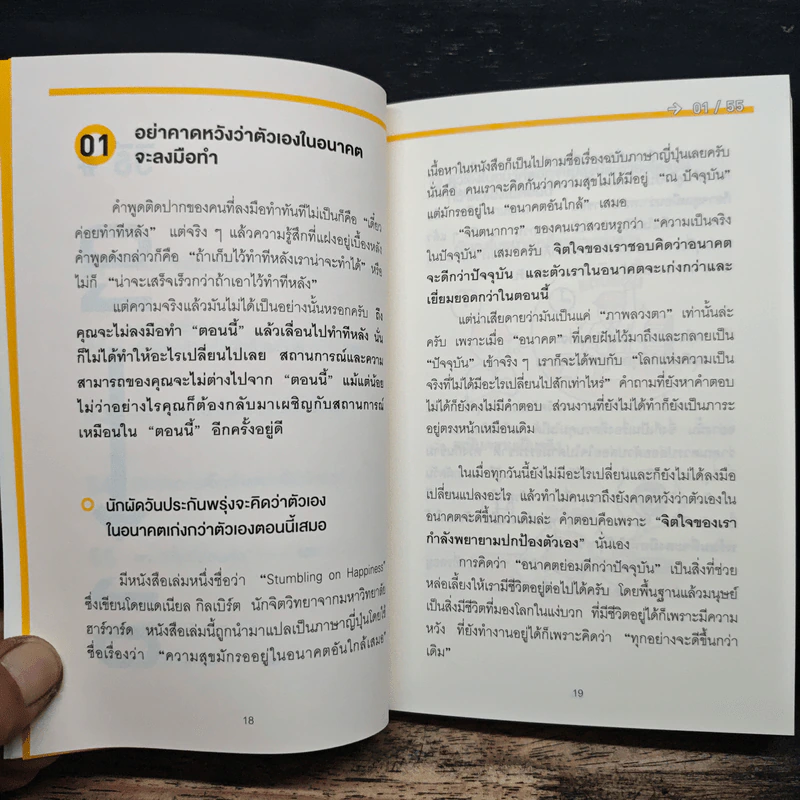 01
อย่าคาดหวังว่าตัวเองในอนาคต
จะลงมือทำ
คำพูดติดปากของคนที่ลงมือทำทันทีไม่เป็นก็คือ “เดี๋ยว
ค่อยทำทีหลัง” แต่จริง ๆ แล้วความรู้สึกที่แฝงอยู่เบื้องหลัง
คำพูดดังกล่าวก็คือ “ถ้าเก็บไว้ทำทีหลังเราน่าจะทำได้” หรือ
ไม่ก็ “น่าจะเสร็จเร็วกว่าถ้าเอาไว้ทำทีหลัง”
แต่ความจริงแล้วมันไม่ได้เป็นอย่างนั้นหรอกครับ ถึง
คุณจะไม่ลงมือทำ “ตอนนี้” แล้วเลื่อนไปทำทีหลัง นั่น
ก็ไม่ได้ทำให้อะไรเปลี่ยนไปเลย สถานการณ์และความ
สามารถของคุณจะไม่ต่างไปจาก “ตอนนี้” แม้แต่น้อย
ไม่ว่าอย่างไรคุณก็ต้องกลับมาเผชิญกับสถานการณ์
เหมือนใน “ตอนนี้” อีกครั้งอยู่ดี
นักผัดวันประกันพรุ่งจะคิดว่าตัวเอง
ในอนาคตเก่งกว่าตัวเองตอนนี้เสมอ
มีหนังสือเล่มหนึ่งชื่อว่า “Stumbling on Happiness”
ซึ่งเขียนโดยแดเนียล กิลเบิร์ต นักจิตวิทยาจากมหาวิทยาลัย
ฮาร์วาร์ด หนังสือเล่มนี้ถูกนำมาแปลเป็นภาษาญี่ปุ่นโดยใช้
ชื่อเรื่องว่า “ความสุขมักรออยู่ในอนาคตอันใกล้เสมอ”
18
→ 01 / 55
เนื้อหาในหนังสือก็เป็นไปตามชื่อเรื่องฉบับภาษาญี่ปุ่นเลยครับ
นั่นคือ คนเราจะคิดกันว่าความสุขไม่ได้มีอยู่ “ณ ปัจจุบัน”
แต่มักรออยู่ใน “อนาคตอันใกล้” เสมอ
“จินตนาการ” ของคนเราสวยหรูกว่า “ความเป็นจริง
ในปัจจุบัน” เสมอครับ จิตใจของเราชอบคิดว่าอนาคต
จะดีกว่าปัจจุบัน และตัวเราในอนาคตจะเก่งกว่าและ
เยี่ยมยอดกว่าในตอนนี้
แต่น่าเสียดายว่ามันเป็นแค่ “ภาพลวงตา” เท่านั้นล่ะ
ครับ เพราะเมื่อ “อนาคต” ที่เคยฝันไว้มาถึงและกลายเป็น
“ปัจจุบัน” เข้าจริง ๆ เราก็จะได้พบกับ “โลกแห่งความเป็น
จริงที่ไม่ได้มีอะไรเปลี่ยนไปสักเท่าไหร่” คำถามที่ยังหาคำตอบ
ไม่ได้ก็ยังคงไม่มีคำตอบ ส่วนงานที่ยังไม่ได้ทำก็ยังเป็นภาระ
อยู่ตรงหน้าเหมือนเดิม
ในเมื่อทุกวันนี้ยังไม่มีอะไรเปลี่ยนและก็ยังไม่ได้ลงมือ
เปลี่ยนแปลงอะไร แล้วทำไมคนเราถึงยังคาดหวังว่าตัวเองใน
อนาคตจะดีขึ้นกว่าเดิมล่ะ คำตอบคือเพราะ “จิตใจของเรา
กำลังพยายามปกป้องตัวเอง” นั่นเอง
การคิดว่า “อนาคตย่อมดีกว่าปัจจุบัน” เป็นสิ่งที่ช่วย
หล่อเลี้ยงให้เรามีชีวิตอยู่ต่อไปได้ครับ โดยพื้นฐานแล้วมนุษย์
เป็นสิ่งมีชีวิตที่มองโลกในแง่บวก ที่มีชีวิตอยู่ได้ก็เพราะมีความ
หวัง ที่ยังทำงานอยู่ได้ก็เพราะคิดว่า “ทุกอย่างจะดีขึ้นกว่า
เดิม”
19